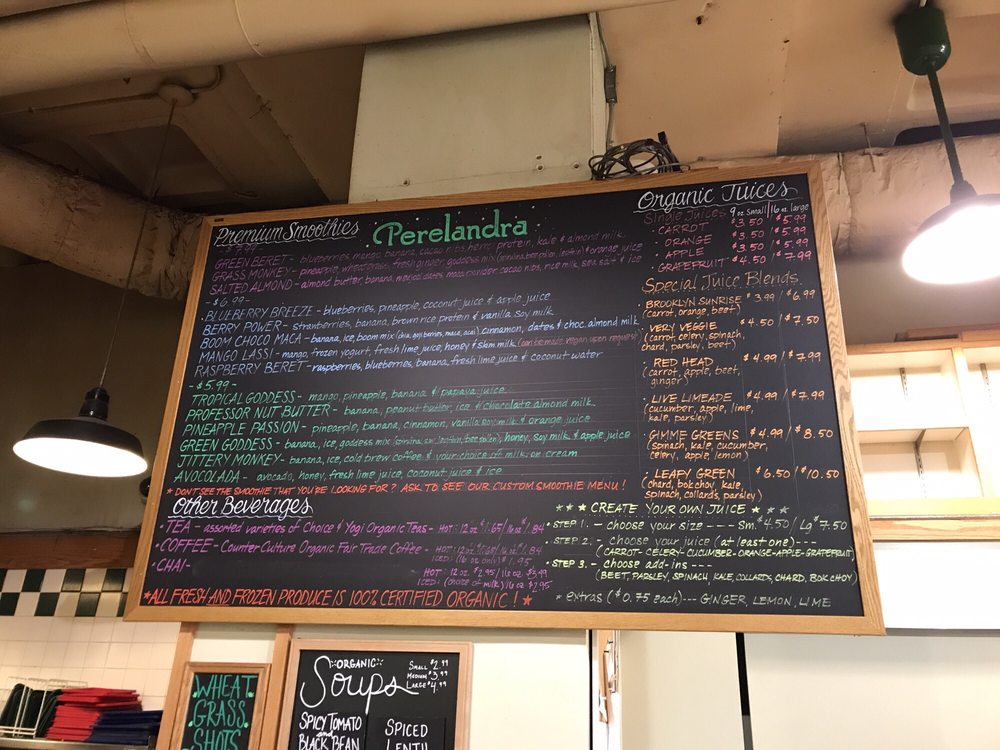 Premium Smoothies
Perelandra
GREEN BERET - blueberries, mango, banana, cacao nibs, hemp protein, kale & almond milk
GRASS MONKEY - pineapple, wheatgrass, fresh ginger, goddess mix (spirulina, bee pollen, lecithin) & orange juice
SALTED ALMOND - almond butter, banana, medjool dates, maca powder, cacao nibs, rice milk, sea salt & ice
- $6.99 -
BLUEBERRY BREEZE - blueberries, pineapple, coconut juice & apple juice
BERRY POWER - strawberries, banana, brown rice protein & vanilla soy milk
BOOM CHOCO MACA - banana, ice, boom mix (chia, goji berries, maca, acai) cinnamon, dates & choc. almond milk
MANGO LASSI - mango, frozen yogurt, fresh lime juice, honey & skim milk (can be made vegan upon request)
RASPBERRY BERET - raspberries, blueberries, banana, fresh lime juice & coconut water
- $5.99 -
TROPICAL GODDESS - mango, pineapple, banana & papaya juice
PROFESSOR NUT BUTTER - banana, peanut butter, ice & chocolate almond milk
PINEAPPLE PASSION - pineapple, banana, cinnamon, vanilla soy milk & orange juice
GREEN GODDESS - banana, ice, goddess mix (spirulina, lecithin, bee pollen), honey, soy milk & apple juice
JITTERY MONKEY - banana, ice, cold brew coffee & your choice of milk or cream
AVOCOLADA - avocado, honey, fresh lime juice, coconut juice & ice
* DON'T SEE THE SMOOTHIE THAT YOU'RE LOOKING FOR? ASK TO SEE OUR CUSTOM SMOOTHIE MENU!
Other Beverages
• TEA - assorted varieties of Choice & Yogi Organic Teas - HOT: 12 oz $1.65/16 oz $1.84
• COFFEE - Counter Culture Organic Fair Trade Coffee - HOT: 12 oz $1.65/16 oz $1.84
ICED: (16 oz only) $1.95
• CHAI -
HOT: 12 oz $2.95/16 oz $3.49
ICED: (choice of milk) 16 oz $2.95
*ALL FRESH AND FROZEN PRODUCE IS 100% CERTIFIED ORGANIC! *
Organic Juices
Single Juices 9 oz small/16 oz large
• CARROT $3.50/$5.99
• ORANGE $3.50/$5.99
• APPLE $3.50/$5.99
• GRAPEFRUIT $4.50/$7.99
Special Juice Blends
• BROOKLYN SUNRISE $3.99/$6.99
(carrot, orange, beet)
• VERY VEGGIE $4.50/$7.50
(carrot, celery, spinach,
chard, parsley, beet)
• RED HEAD $4.99/$7.99
(carrot, apple, beet,
ginger)
• LIVE LIMEADE $4.99/$7.99
(cucumber, apple, lime,
kale, parsley)
• GIMME GREENS $4.99/$8.50
(spinach, kale, cucumber,
celery, apple, lemon)
• LEAFY GREEN $6.50/$10.50
(chard, bok choy, kale,
spinach, collards, parsley)
★ ★ ★ CREATE YOUR OWN JUICE ★ ★ ★
• STEP 1. - choose your size ---- Sm. $4.50/Lg $7.50
• STEP 2. - choose your juice (at least one) ---
(CARROT - CELERY - CUCUMBER - ORANGE - APPLE - GRAPEFRUIT)
• STEP 3. - choose add-ins ---
(BEET, PARSLEY, SPINACH, KALE, COLLARDS, CHARD, BOK CHOY)
* extras ($0.75 each) --- GINGER, LEMON, LIME
WHEAT
GRASS
SHOTS
ORGANIC
Soups
SMALL $2.99
MEDIUM $3.99
LARGE $4.99
SPICY TOMATO
and
BLACK BEAN
SPICED
LENTIL